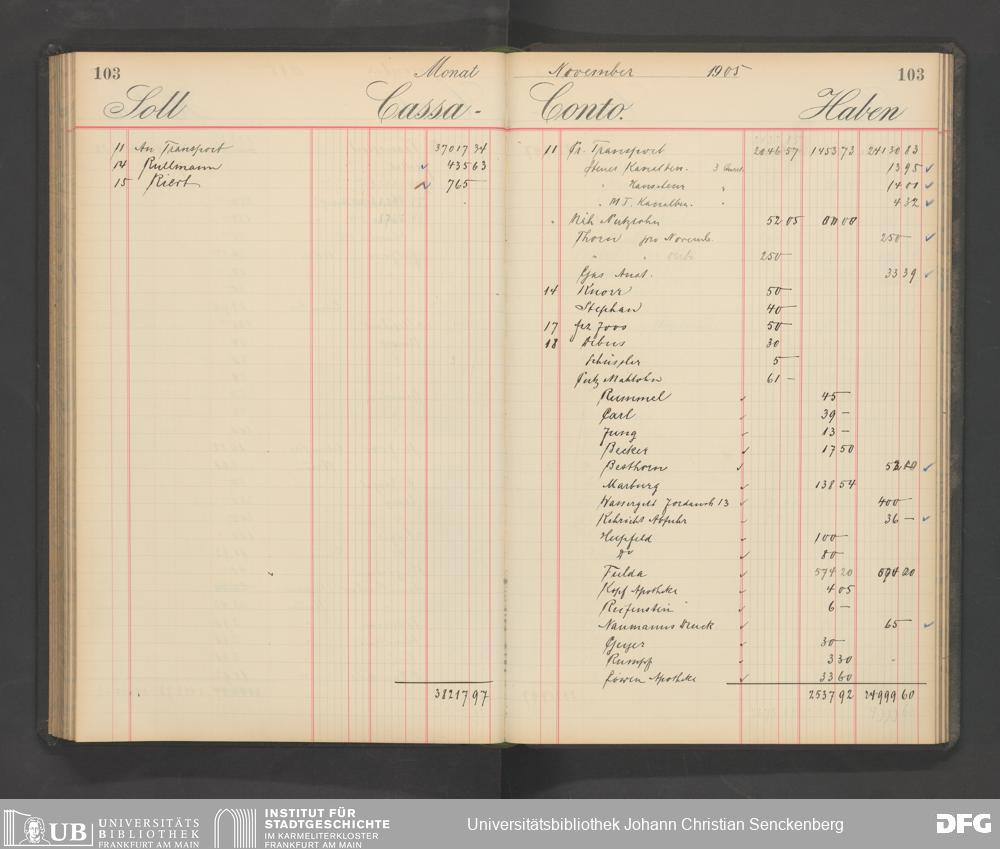 103 Monat
Soll Cassa-
11 An Transport 37017 34
14 Rullmann 435 63
15 765 —
38217 97
November 1905 103
Conto. Haben
11 Pr. Transport 2046 57 1453 73 24130 83
13 95
14 01
" M.T. 4 32
52 05
Thorn pro Novemb. 250 —
250 —
Gas Anst. 33 39
14 Knorr 50 —
Stephan 40 —
17 Joos 50 —
18 Debus 30
5 —
Putz 61 —
Rummel 45 —
Carl 39 —
Jung 13 —
Becker 17 50
Besthorn
Marburg 138 54
Wassergeld Jordanstr 13 400 —
Kehricht Abfuhr 36 —
Hupfeld 100 —
do 80 —
Fulda 574 20
Kopf Apotheke 4 05
Reifenstein 6 —
Naumanns Druck 65 —
Geyer 30 —
Rumpf 3 30
Löwen Apotheke 33 60
2537 92 24999 60
UB UNIVERSITÄTS
BIBLIOTHEK
FRANKFURT AM MAIN
INSTITUT FÜR
STADTGESCHICHTE
IM KARMELITERKLOSTER
FRANKFURT AM MAIN
Universitätsbibliothek Johann Christian Senckenberg
DFG